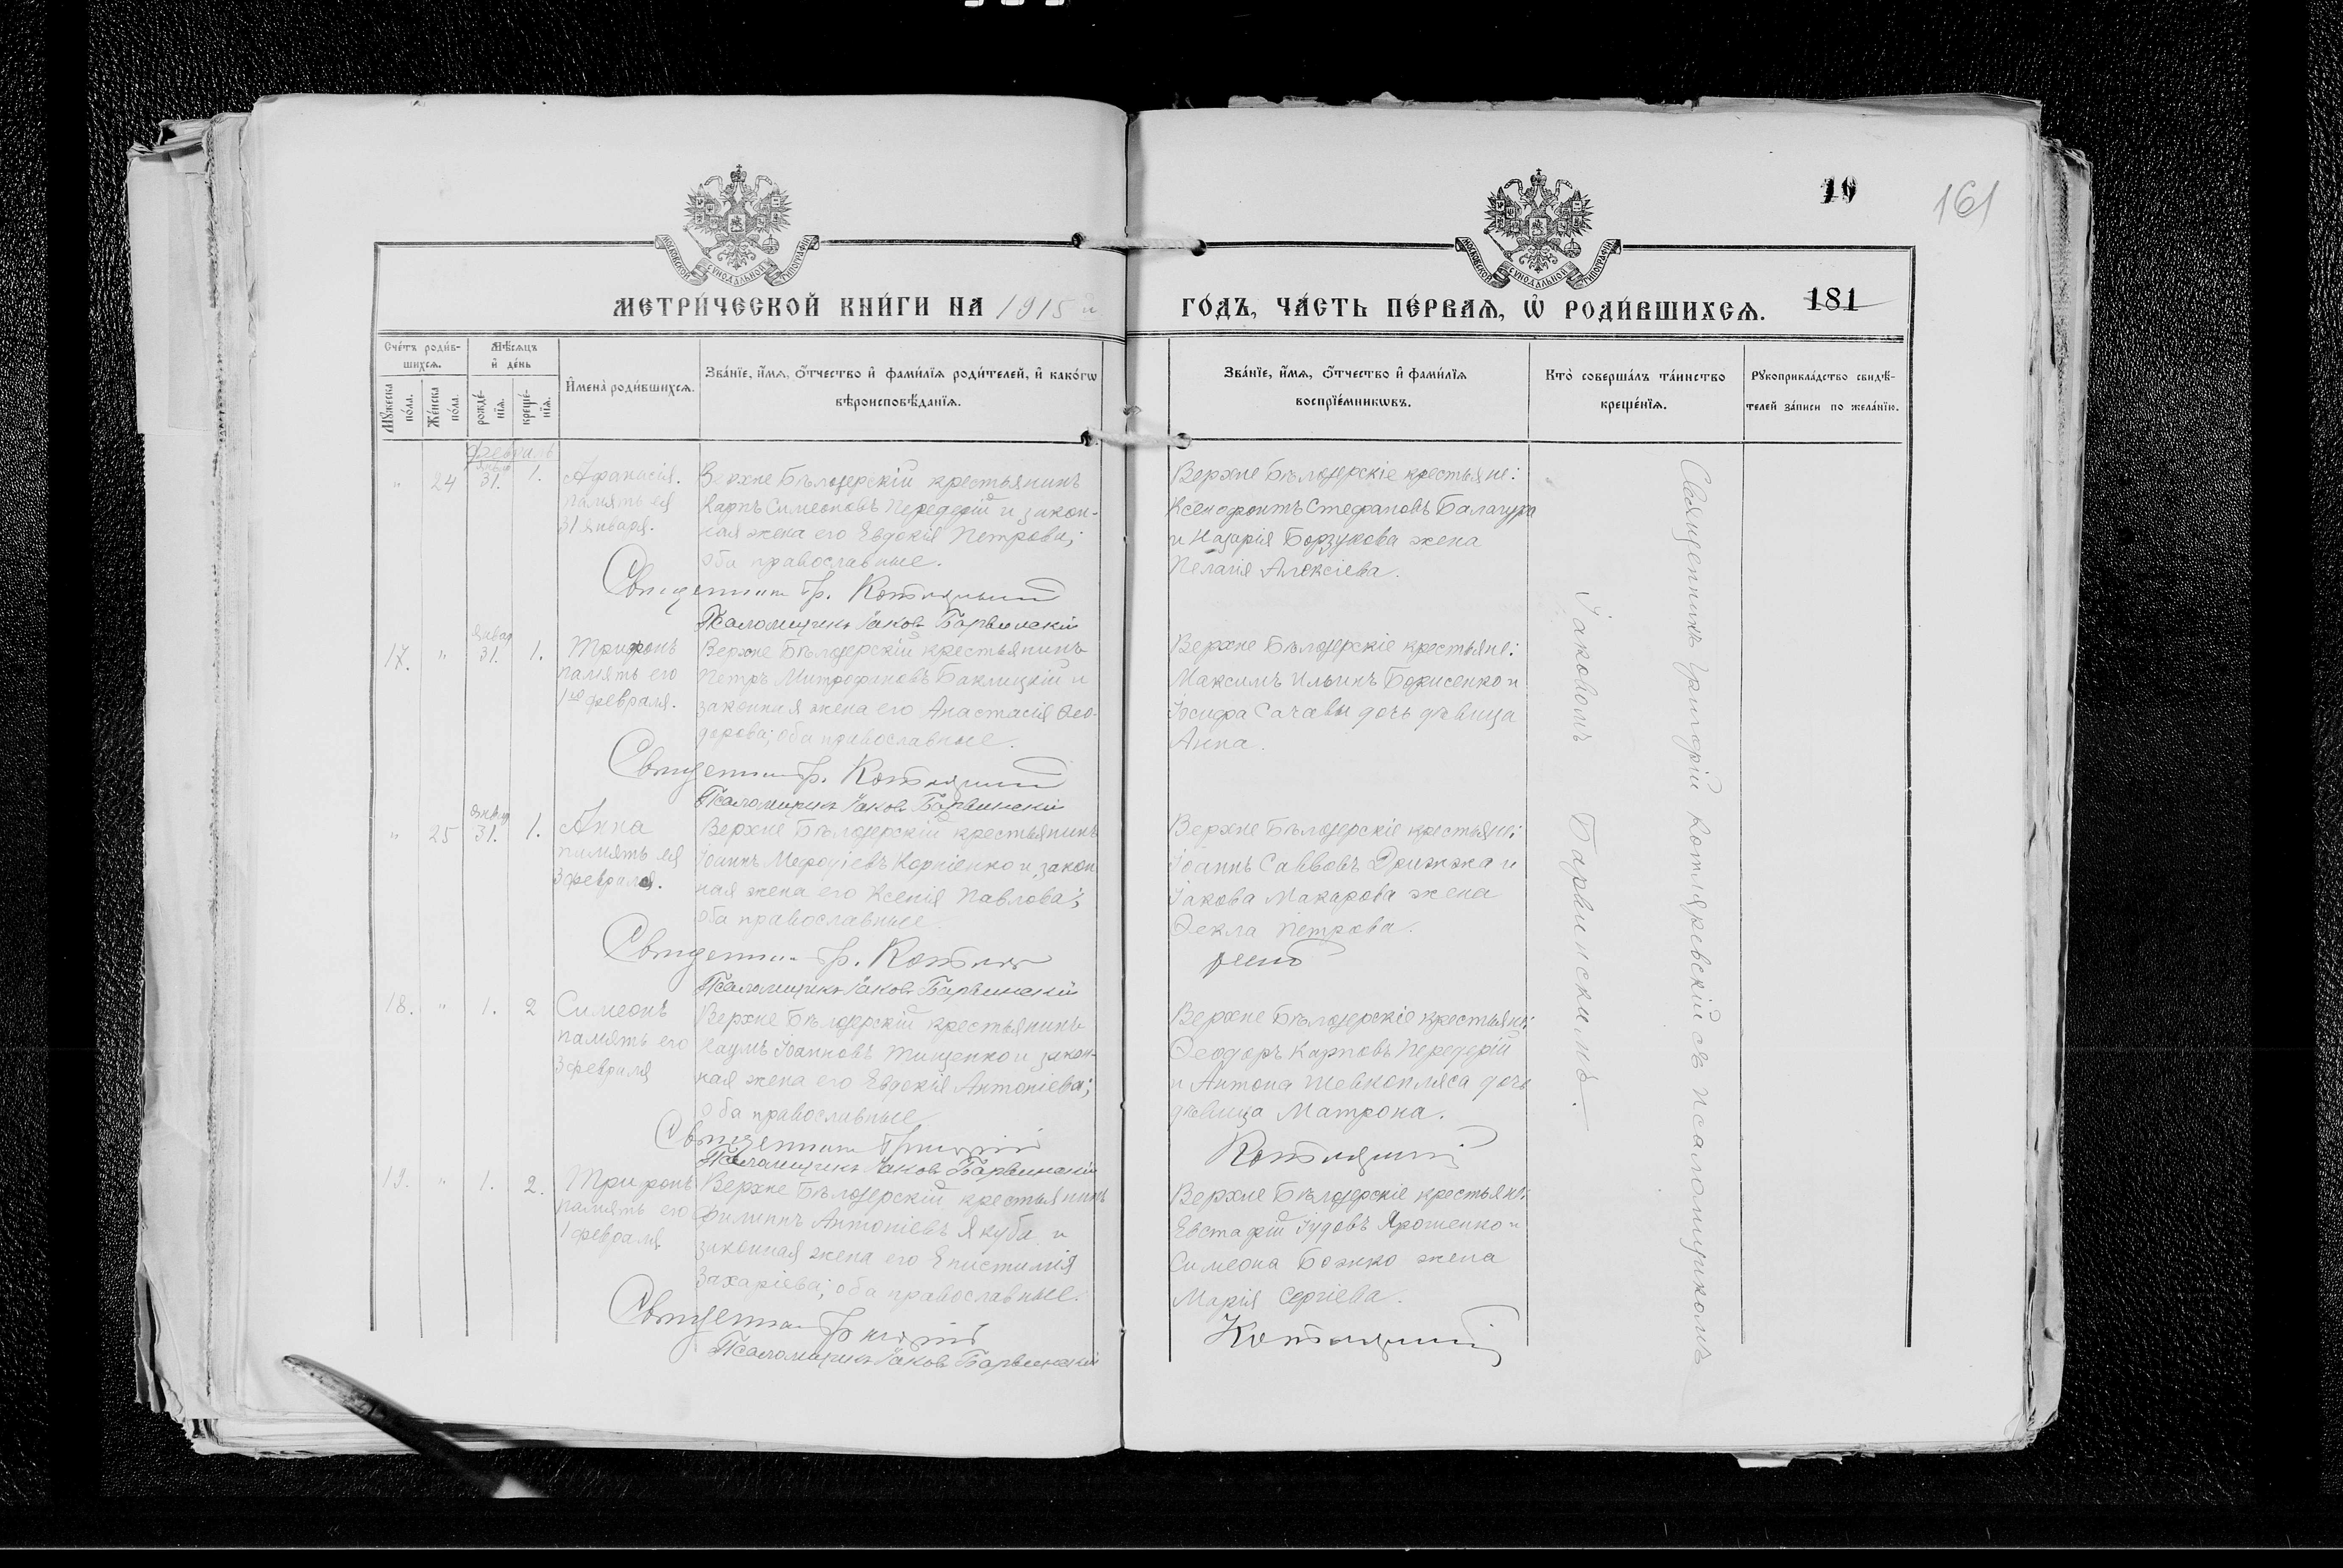 19
161
МЕТРИ́ЧЕСКОЙ КНИ́ГИ НА 1915 й ГО́ДЪ, ЧА́СТЬ ПЕ́РВАѦ, Ѡ҆ РОДИ́ВШИХСѦ.
181
Сче́тъ роди́в-
шихсѧ.
Мѹ́жеска
по́ла.
Же́нска
по́ла.
Мѣ́сѧцъ
и҆ де́нь
рожде́-
нїѧ.
креще́-
нїѧ.
И҆мена̀ роди́вшихсѧ.
Зва́нїе, и҆́мѧ, ѻ҆́тчество и҆ фами́лїѧ роди́телей, и҆ како́гѡ
вѣроисповѣ́данїѧ.
Зва́нїе, и҆́мѧ, ѻ҆́тчество и҆ фами́лїѧ
воспрїе́мникѡвъ.
Кто̀ соверша́лъ та́инство
креще́нїѧ.
Рѹкоприкла́дство свидѣ́-
телей за́писи по жела́нїю.
Февраль
" 24 31. 1.
Афанасія.
память ея
31 января.
Верхне Бѣлозерскій крестьянинъ
Карпъ Симеоновъ Передерій и закон-
ная жена его Евдокія Петрова;
оба православные.
Псаломщикъ Іаковъ Барвинскій
Верхне Бѣлозерскіе крестьяне:
Ксенофонтъ Стефановъ Балагура
и Назарія Борзукова жена
Пелагія Алексіева.
17. " 31. 1.
Трифонъ
память его
1го февраля.
Верхне Бѣлозерскій крестьянинъ
Петръ Митрофановъ Баклицкій и
законная жена его Анастасія Ѳео-
дорова; оба православные.
Псаломщикъ Іаковъ Барвинскій
Верхне Бѣлозерскіе крестьяне:
Максимъ Ильинъ Борисенко и
Іосифа Сачавы дочь дѣвица
Анна.
" 25 31. 1.
Анна
память ея
3 февраля.
Верхне Бѣлозерскій крестьянинъ
Іоаннъ Меѳодіевъ Корніенко и закон
ная жена его Ксенія Павлова;
оба православные.
Псаломщикъ Іаковъ Барвинскій
Верхне Бѣлозерскіе крестьяне:
Іоаннъ Саввовъ Дрижжа и
Іакова Макарова жена
Ѳекла Петрова.
18. " 1. 2
Симеонъ
память его
3 февраля
Верхне Бѣлозерскій крестьянинъ
Наумъ Іоанновъ Тищенко и закон-
ная жена его Евдокія Антоніева;
оба православные
Псаломщикъ Іаковъ Барвинскій
Верхне Бѣлозерскіе крестьяне:
Ѳеодоръ Карповъ Передерій
и Антона Шевкопляса дочь
дѣвица Матрона.
19. " 1. 2.
Трифонъ
память его
1 февраля
Верхне Бѣлозерскій крестьянинъ
Филиппъ Антоніевъ Якуба и
законная жена его Епистимія
Захаріева; оба православные.
Псаломщикъ Іаковъ Барвинскій
Верхне Бѣлозерскіе крестьяне:
Евстафій Іудовъ Ярошенко и
Симеона Божко жена
Марія Сергіева.
Священникъ Григорій Котляревскій съ псаломщикомъ
Іаковомъ Барвинскимъ.